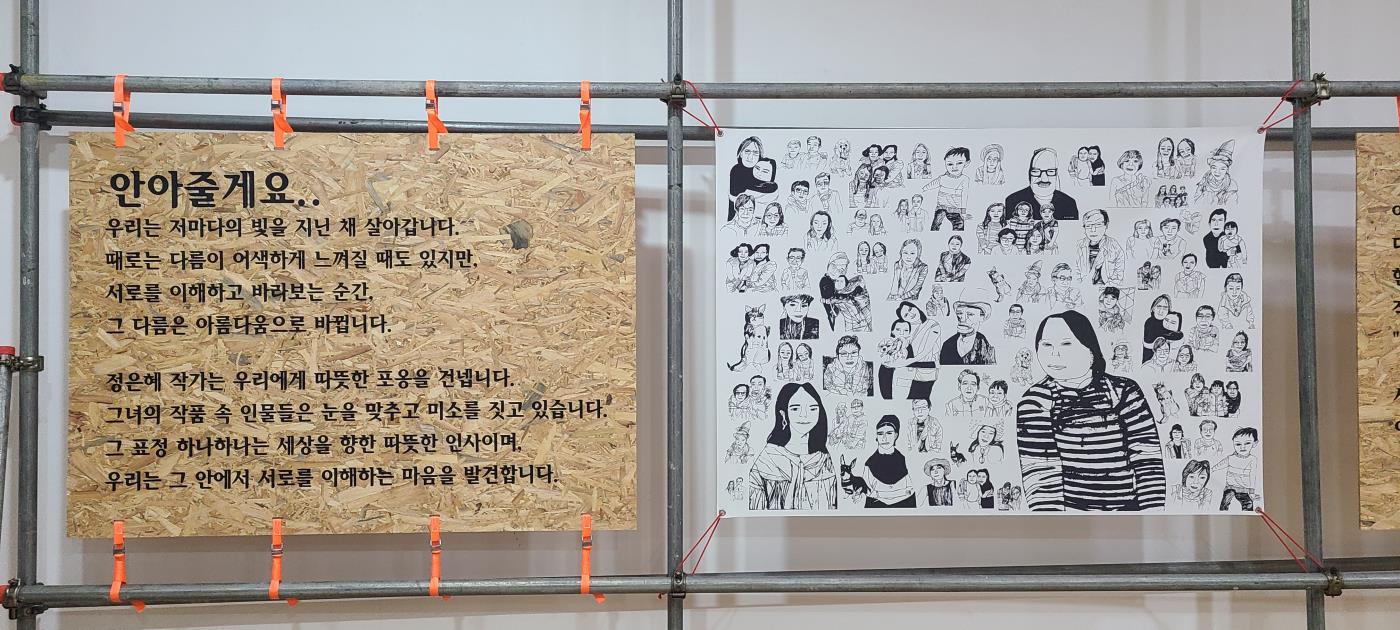 안아줄게요..
우리는 저마다의 빛을 지닌 채 살아갑니다.
때로는 다름이 어색하게 느껴질 때도 있지만,
서로를 이해하고 바라보는 순간,
그 다름은 아름다움으로 바뀝니다.
정은혜 작가는 우리에게 따뜻한 포옹을 건넵니다.
그녀의 작품 속 인물들은 눈을 맞추고 미소를 짓고 있습니다.
그 표정 하나하나는 세상을 향한 따뜻한 인사이며,
우리는 그 안에서 서로를 이해하는 마음을 발견합니다.